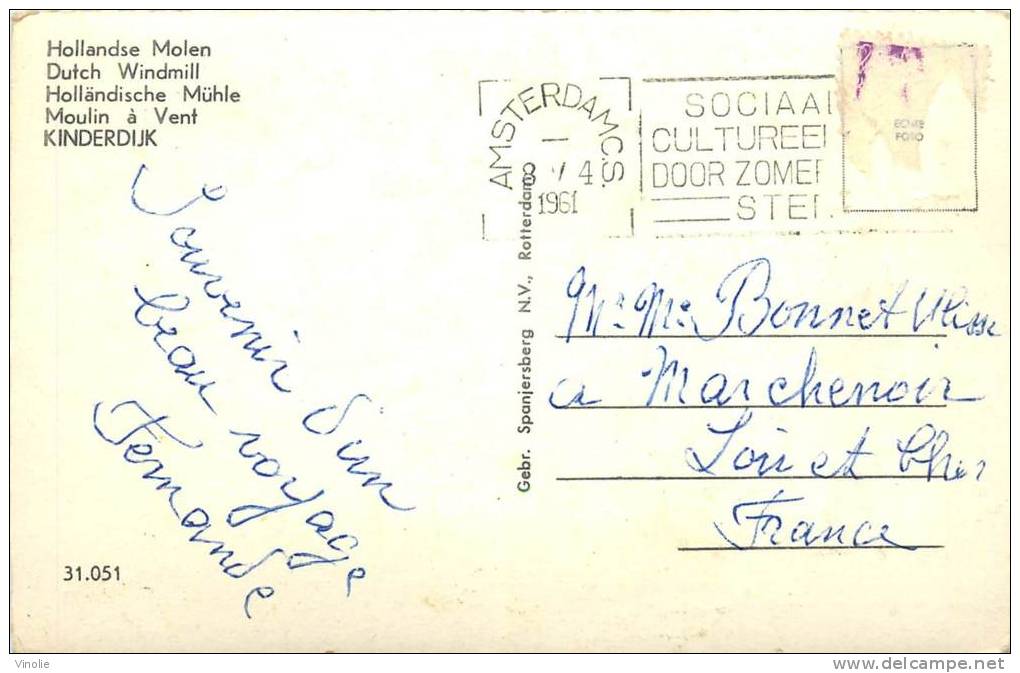 Hollandse Molen
Dutch Windmill
Holländische Mühle
Moulin à Vent
KINDERDIJK
Souvenir d'un
beau voyage
Fernande
31.051
Gebr. Spanjersberg N.V., Rotterdam
AMSTERDAM C.S.
1961
SOCIAAL
CULTUREEL
DOOR ZOMER
ECHTE
FOTO
Mr Me Bonnet Ulisse
a Marchenoir
Loir et Cher
France
Vinolie
http://www.delcampe.net